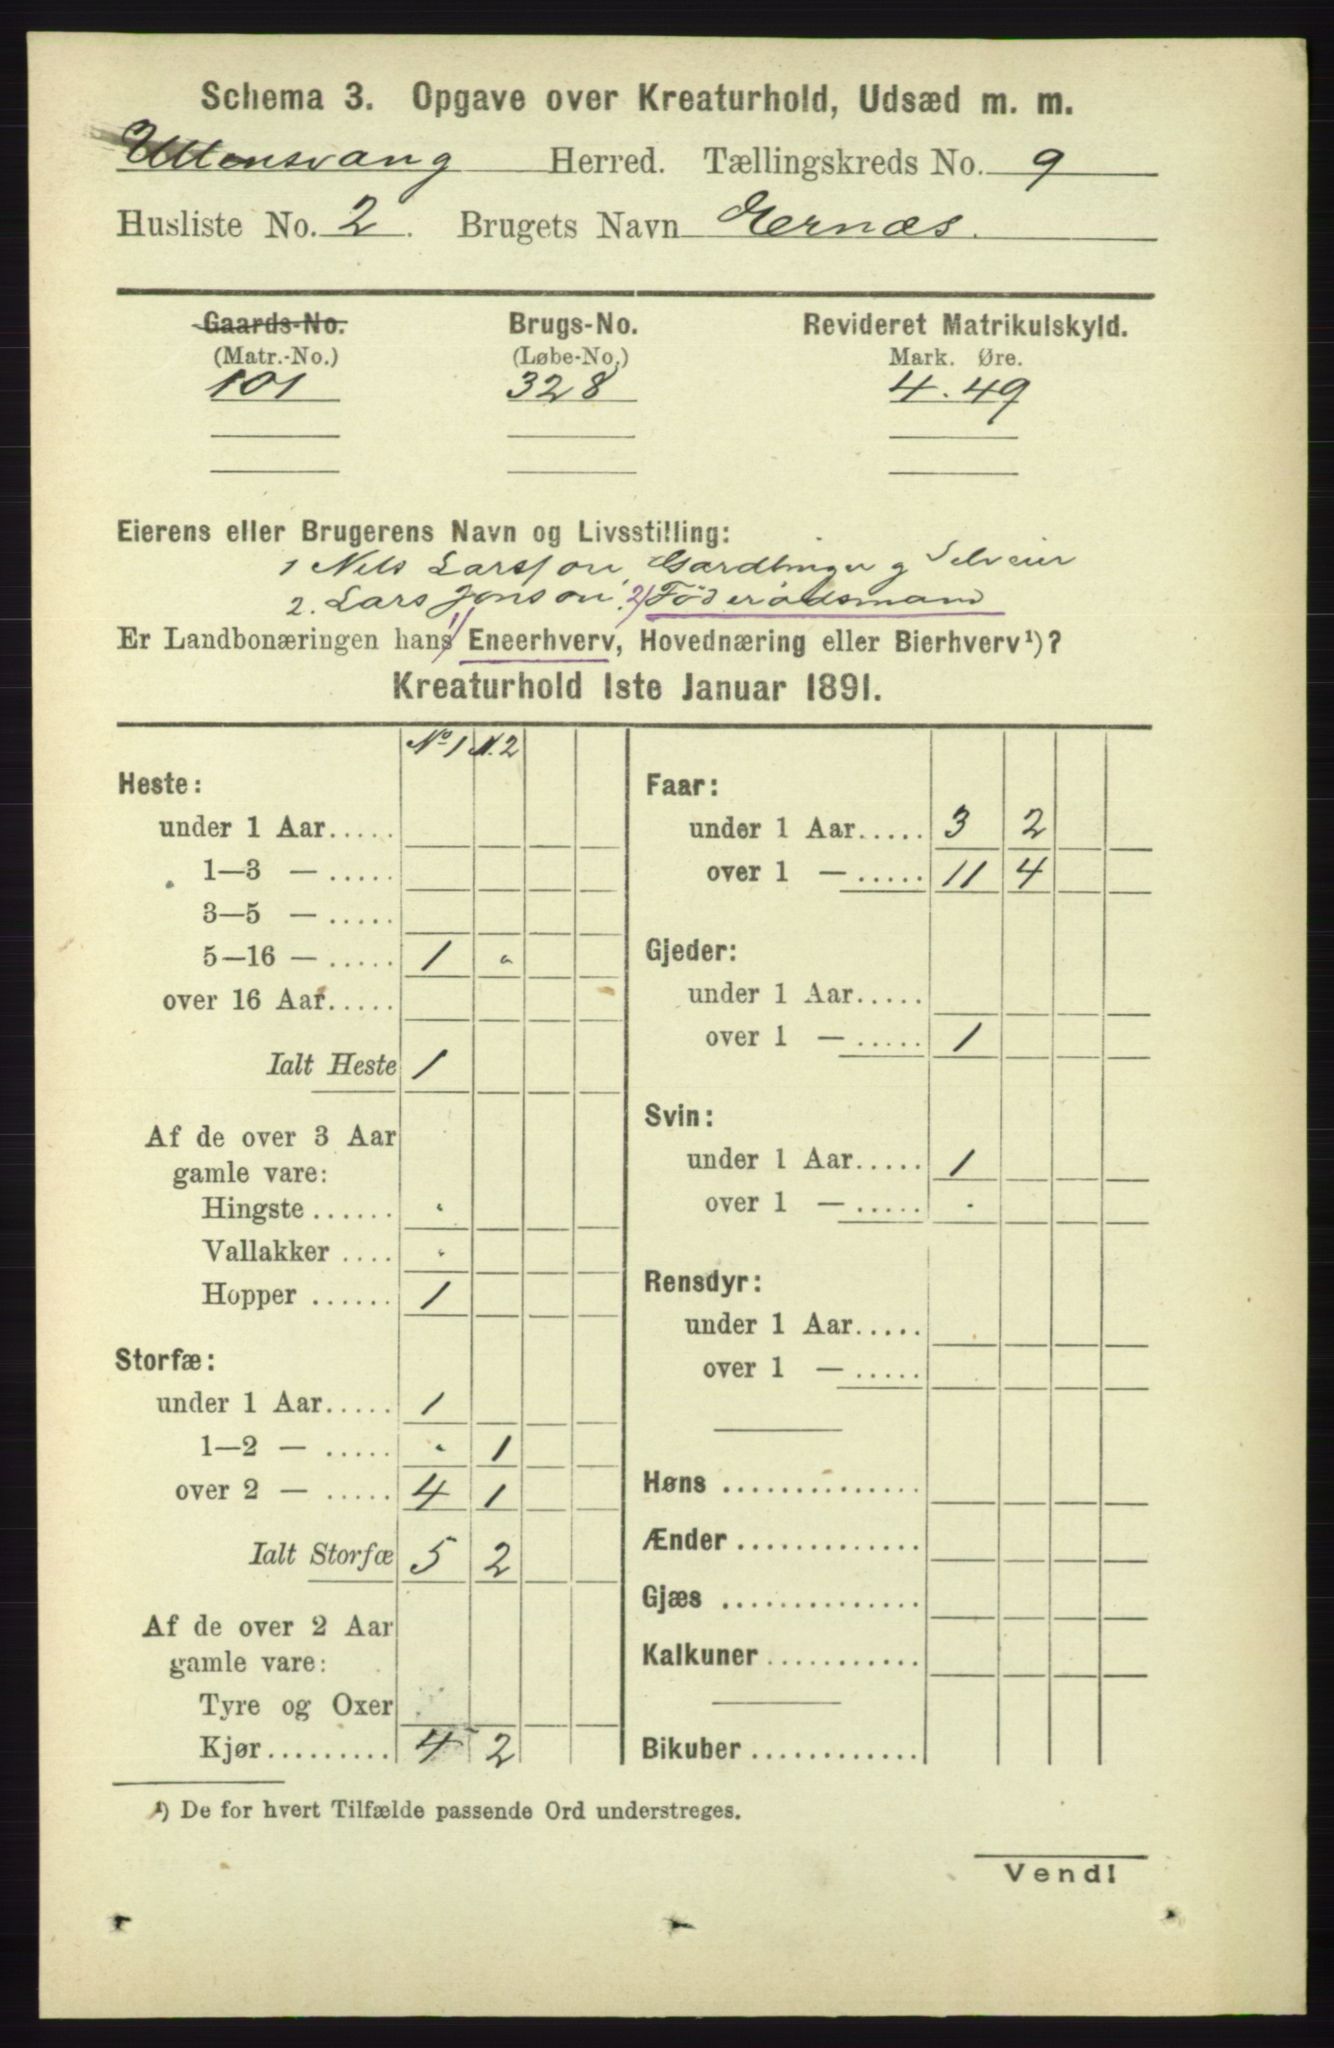 Schema 3. Opgave over Kreaturhold, Udsæd m. m.
Ullensvang Herred. Tællingskreds No. 9
Husliste No. 2. Brugets Navn Jernæs.
Gaards-No. Brugs-No. Revideret Matrikulskyld.
(Matr.-No.) (Løbe-No.) Mark. Øre.
101 328 4.49
Eierens eller Brugerens Navn og Livsstilling:
1 Nels Larsson, Gardbruger og Selveier
2. Lars Jonson. 2) Föderådsmand
Er Landbonæringen hans 1) Eneerhverv, Hovednæring eller Bierhverv¹)?
Kreaturhold 1ste Januar 1891.
No 1 N. 2
Heste:
under 1 Aar.....
1—3 — .....
3—5 — .....
5—16 — ..... 1 "
over 16 Aar.....
Ialt Heste 1
Af de over 3 Aar
gamle vare:
Hingste ...... "
Vallakker .... "
Hopper ...... 1
Storfæ:
under 1 Aar..... 1
1—2 — ..... " 1
over 2 — ..... 4 1
Ialt Storfæ 5 2
Af de over 2 Aar
gamle vare:
Tyre og Oxer
Kjør......... 4 2
Faar:
under 1 Aar..... 3 2
over 1 — ..... 11 4
Gjeder:
under 1 Aar.....
over 1 — ..... 1
Svin:
under 1 Aar..... 1
over 1 — ..... .
Rensdyr:
under 1 Aar.....
over 1 — .....
Høns ..............
Ænder .............
Gjæs ..............
Kalkuner ...........
Bikuber ............
¹) De for hvert Tilfælde passende Ord understreges.
Vend!